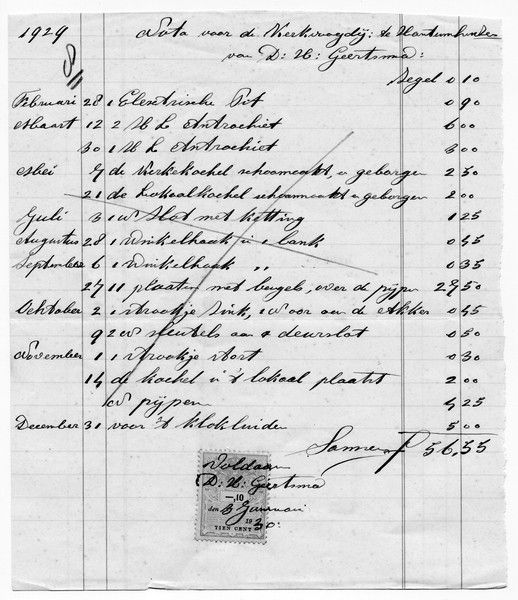 1929 Nota voor de Kerkvoogdij: te Hantumhuizen
8/11
van D: H: Geertsma:
Zegel 0 10
Februari 28 1 Electrische Pit 0 90
Maart 12 2 H L Antraciet 6 00
30 1 H L Antraciet 3 00
Mei 7 de Kerkekachel schoonmaakt, u geborgen 2 50
21 de Lokaalkachel schoonmaakt u geborgen 2 00
Juli 3 1 Slot met ketting 1 25
Augustus 28 1 Winkelhaak 1 bank 0 55
September 6 1 Winkelhaak „ 0 35
27 11 plaaten met beugels, over de pijpen 27 50
Oktober 2 1 strookje Zink, voor aan de Akker 0 55
9 2 sleutels aan deurslot 0 50
November 1 1 strookje 0 30
14 de kachel in 't lokaal plaatst 2 00
pijpen 4 25
December 31 voor 't klokluiden 5 00
Samen f 56,55
Voldaan
D: H: Geertsma
—,10
den 3 Januari
1930:
TIEN CENT